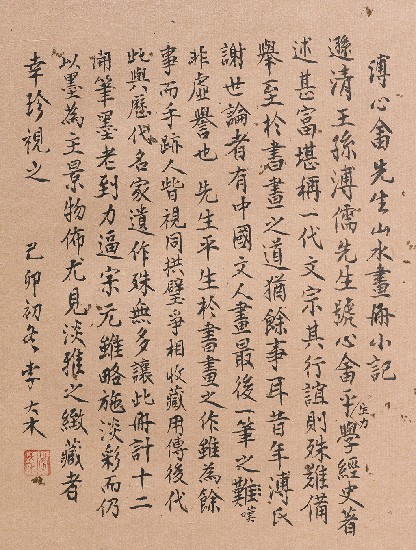 溥心畬先生山水畫冊小記
遜清王孫溥儒先生號心畬平生力學經史著
述甚富堪稱一代文宗其行誼則殊難備
舉至於書畫之道猶餘事耳昔年溥氏
謝世論者有中國文人畫最後一筆之難嘆
非虛譽也先生平生於書畫之作雖為餘
事而手跡人皆視同拱璧爭相收藏用傳後代
此與歷代名家遺作殊無多讓此冊計十二
開筆墨老到力逼宗元雖略施淡彩而仍
以墨為主景物佈尤見淡雅之緻藏者
幸珍視之
己卯初冬李大木